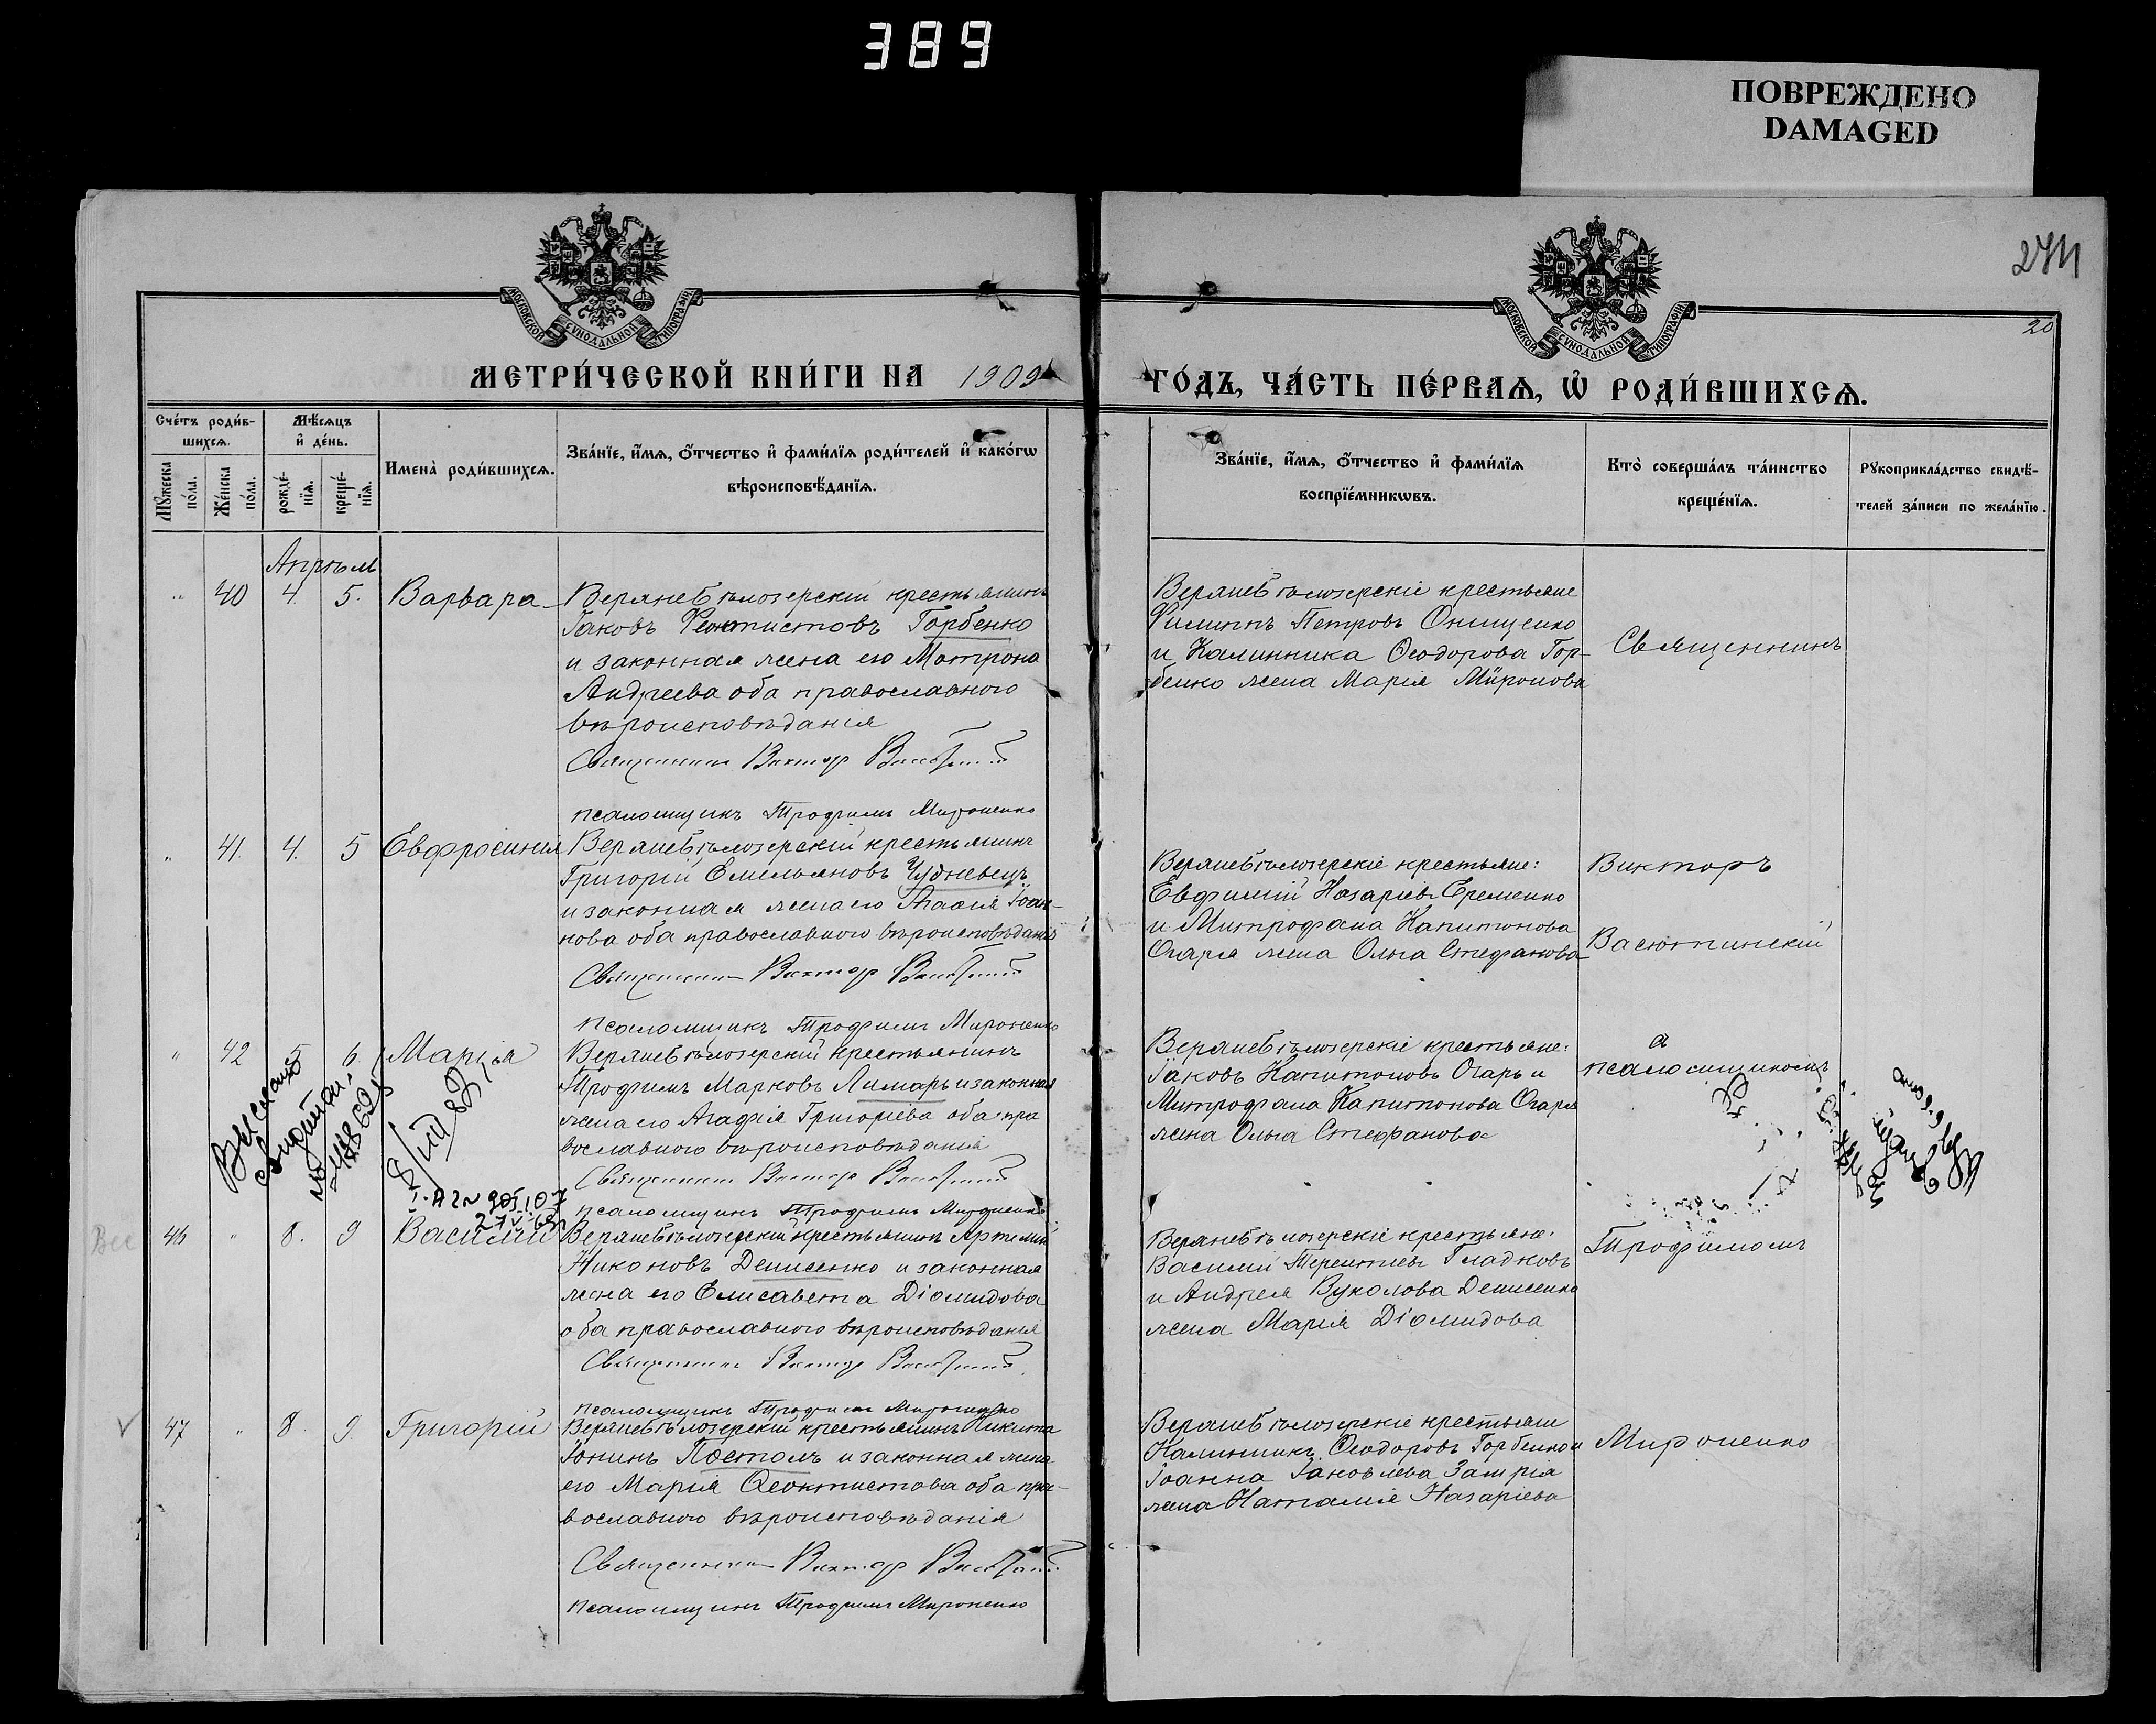 389
ПОВРЕЖДЕНО
DAMAGED
МОСКОВСКОЙ СѴНОДАЛЬНОЙ ТИПОГРАФІИ
МОСКОВСКОЙ СѴНОДАЛЬНОЙ ТИПОГРАФІИ
20
МЕТРИ́ЧЕСКОЙ КНИ́ГИ НА 1909
ГО́ДЪ, ЧА́СТЬ ПЕ́РВАѦ, Ѡ҆ РОДИ́ВШИХСѦ.
Сче́тъ роди́в-
шихсѧ.
Мꙋ́жеска по́ла.
Же́нска по́ла.
Мѣ́сѧцъ
и҆ де́нь.
рожде́-
нїѧ.
креще́-
нїѧ.
Имена̀ роди́вшихсѧ.
Зва́нїе, и҆́мѧ, ѻ҆́тчество и҆ фами́лїѧ роди́телей и҆ како́гѡ
вѣроисповѣ́данїѧ.
Зва́нїе, и҆́мѧ, ѻ҆́тчество и҆ фами́лїѧ
воспрїе́мникѡвъ.
Кто̀ соверша́лъ та́инство
креще́нїѧ.
Рꙋкоприкла́дство свидѣ́-
телей за́писи по жела́нїю.
Апрѣль
" 40 4. 5. Варвара
Верхнебѣлозерскій крестьянинъ
Іаковъ Феоктистовъ Горбенко
и законная жена его Матрона
Андреева оба православного
вѣроисповѣданія
Священникъ Викторъ
псаломщикъ Трофимъ Мироненко
Верхнебѣлозерскіе крестьяне
Филиппъ Петровъ Онищенко
и Калинника Ѳеодорова Гор-
бенко жена Марія Миронова
Священникъ
" 41. 4. 5 Евфросинія
Верхнебѣлозерскій крестьянинъ
Григорій Емельяновъ Чудневецъ
и законная жена его Агафія Іоан-
нова оба православного вѣроисповѣданія
Священникъ Викторъ
псаломщикъ Трофимъ Мироненко
Верхнебѣлозерскіе крестьяне:
Евфимій Назаріевъ Еременко
и Митрофана Капитонова
Огаря жена Ольга Стефанова
Викторъ
Васютинскій
" 42 5 6. Марія
Верхнебѣлозерскій крестьянинъ
Трофимъ Марковъ Лимарь и законная
жена его Агафія Григоріева оба пра
вославного вѣроисповѣданія
Священникъ Викторъ
псаломщикъ Трофимъ Мироненко
Верхнебѣлозерскіе крестьяне:
Іаковъ Капитоновъ Огарь и
Митрофана Капитонова Огаря
жена Ольга Стефанова
съ
псаломщикомъ
46 " 8. 9 Василій
Верхнебѣлозерскій крестьянинъ Артемій
Никоновъ Денисенко и законная
жена его Елисавета Діомидова
оба православного вѣроисповѣданія
Священникъ Викторъ
псаломщикъ Трофимъ Мироненко
Верхнебѣлозерскіе крестьяне:
Василій Терентіевъ Гладковъ
и Андрея Вуколова Денисенко
жена Марія Діомидова
Трофимомъ
47 " 8. 9. Григорій
Верхнебѣлозерскій крестьянинъ Никита
Іонинъ Постолъ и законная жена
его Марія Ѳеоктистова оба пра-
вославного вѣроисповѣданія
Священникъ Викторъ
псаломщикъ Трофимъ Мироненко
Верхнебѣлозерскіе крестьяне
Калинникъ Ѳеодоровъ Горбенко и
Іоанна Іаковлева
жена Наталія Назаріева
Мироненко